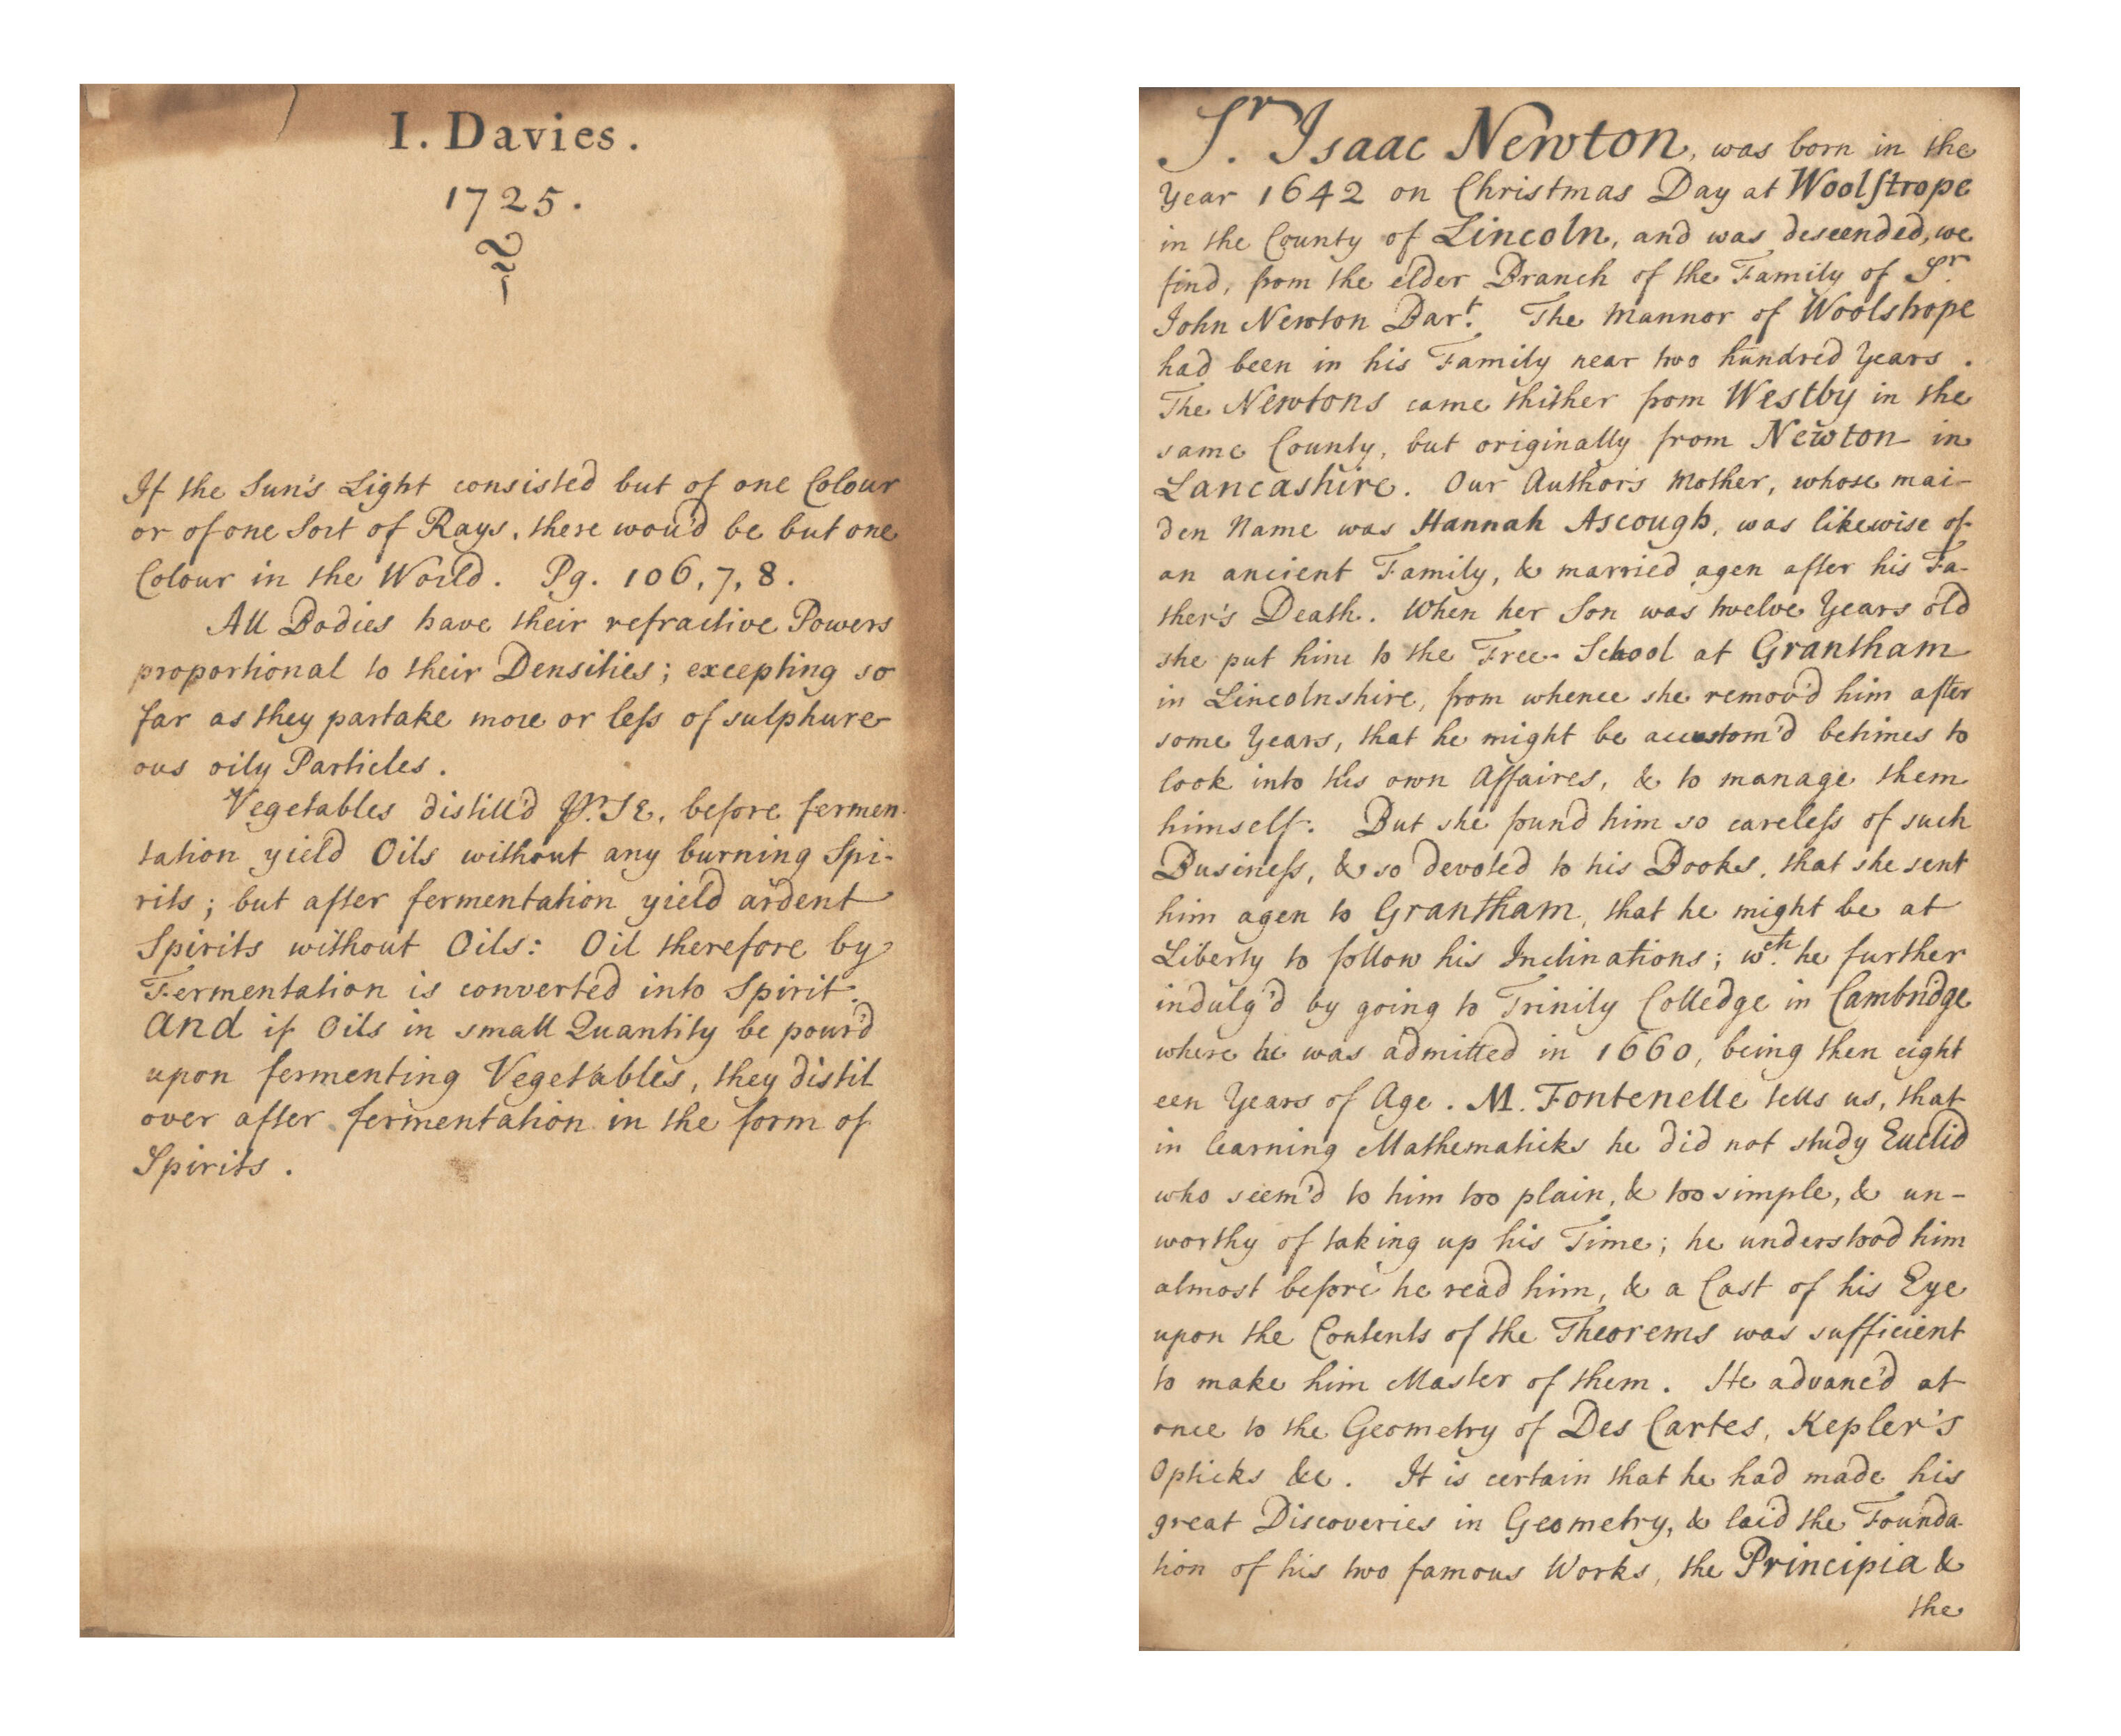 I. Davies.
1725.
If the Sun's Light consisted but of one Colour
or of one Sort of Rays, there wou'd be but one
Colour in the World. Pg. 106, 7, 8.
All Bodies have their refractive Powers
proportional to their Densities; excepting so
far as they partake more or leſs of sulphure-
ous oily Particles.
Vegetables distill'd before fermen-
tation yield Oils without any burning Spi-
rits; but after fermentation yield ardent
Spirits without Oils: Oil therefore by
Fermentation is converted into Spirit.
And if Oils in small Quantity be pour'd
upon fermenting Vegetables, they distil
over after fermentation in the form of
Spirits.
Sr. Isaac Newton, was born in the
Year 1642 on Christmas Day at Woolſtrope
in the County of Lincoln, and was descended, we
find, from the elder Branch of the Family of Sr.
John Newton Bart. The Mannor of Woolstrope
had been in his Family near two hundred Years.
The Newtons came thither from Westby in the
same County, but originally from Newton in
Lancashire. Our Author's Mother, whose mai-
den Name was Hannah Ascough, was likewise of
an ancient Family, & married agen after his Fa-
ther's Death. When her Son was twelve Years old
she put him to the Free-School at Grantham
in Lincolnshire, from whence she remov'd him after
some Years, that he might be accustom'd betimes to
look into his own Affaires, & to manage them
himself. But she found him so careleſs of such
Busineſs, & so devoted to his Books, that she sent
him agen to Grantham, that he might be at
Liberty to follow his Inclinations; wch. he further
indulg'd by going to Trinity Colledge in Cambridge
where he was admitted in 1660, being then eight
een Years of Age. M. Fontenelle tells us, that
in learning Mathematicks he did not study Euclid
who seem'd to him too plain, & too simple, & un-
worthy of taking up his Time; he understood him
almost before he read him, & a Cast of his Eye
upon the Contents of the Theorems was sufficient
to make him Master of them. He advanc'd at
once to the Geometry of Des Cartes, Kepler's
Opticks &c. It is certain that he had made his
great Discoveries in Geometry, & laid the Founda-
tion of his two famous Works, the Principia &
the